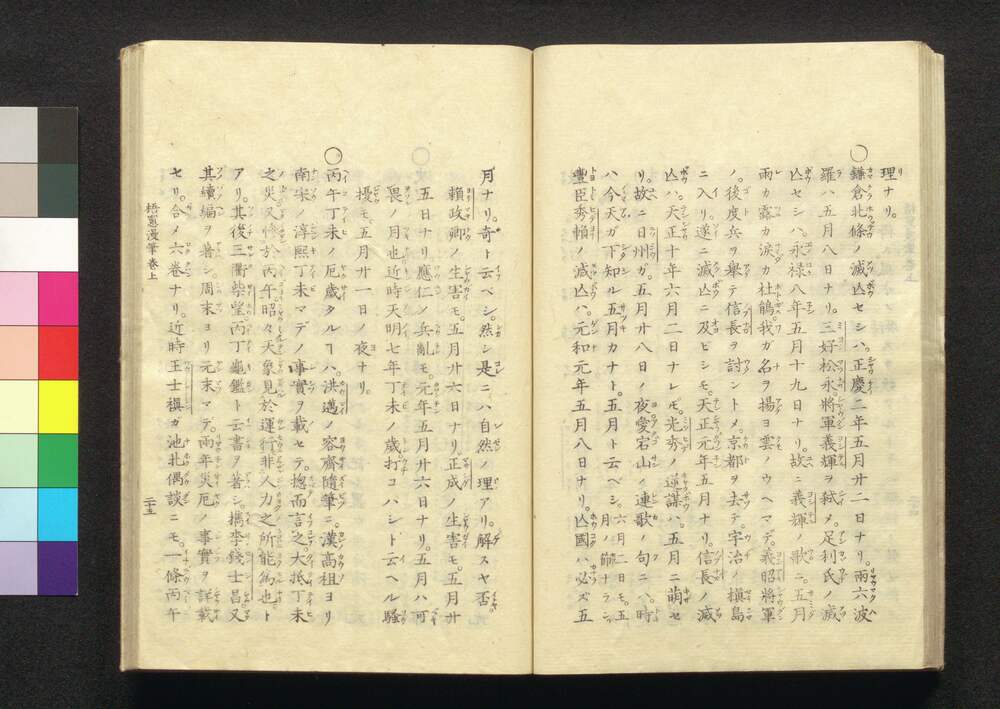 理ナリ。
○鎌倉北條ノ滅亾セシハ。正慶二年五月廿二日ナリ。兩六波
羅ハ五月八日ナリ。三好松永將軍義輝ヲ弑メ。足利氏ノ滅
亾セシハ。永禄八年五月十九日ナリ。故ニ義輝ノ歌ニ。五月
雨カ露カ涙カ杜鵑我ガ名ヲ揚ヨ雲ノウヘマデ。義昭將軍
ノ。後度兵ヲ舉テ信長ヲ討ントメ。京都ヲ去テ。宇治ノ槇島
ニ入リ。遂ニ滅亾ニ及ビシモ。天正元年五月ナリ。信長ノ滅
亾ハ。天正十年六月二日ナレモ。光秀ノ逆謀ハ。五月ニ萌セ
リ。故ニ日州ガ。五月廿八日ノ夜。愛宕山ノ連歌ノ句ニハ。時
ハ今天ガ下知ル五月カナト。五月ト云ベシ。六月二日モ。五
月ノ節ナラン。
豐臣秀賴ノ滅亾ハ。元和元年五月八日ナリ。亾國ハ必ズ五
月ナリ。奇ト云ベシ。然シ是ニハ自然ノ理アリ。解スヤ否。
賴政卿ノ生害モ。五月廿六日ナリ。正成ノ生害モ。五月廿
五日ナリ。應仁ノ兵亂モ。元年五月廿六日ナリ。五月ハ可
畏ノ月也。近時天明七年丁未ノ歳。打コハシト云ヘル騷
擾モ。五月廿一日ノ夜ナリ。
○丙午丁未ノ厄歳タルヿハ。洪邁ノ容齊隨筆ニ。漢高祖ヨリ
南宋ノ淳熙丁未マデノ事實ヲ載セテ。揔而言之。大抵丁未
之災又慘於丙午。昭々天象見於運行。非人力之所能爲也ト
アリ。其後三衢柴望。丙丁龜鑑ト云書ヲ著シ。檇李錢士昌。又
其續編ヲ著シ。周末ヨリ元末マテ。兩年災厄ノ事實ヲ詳載
セリ。合メ六卷ナリ。近時王士禛ガ池北偶談ニモ。一條丙午
梧窓漫筆 卷上
二十五